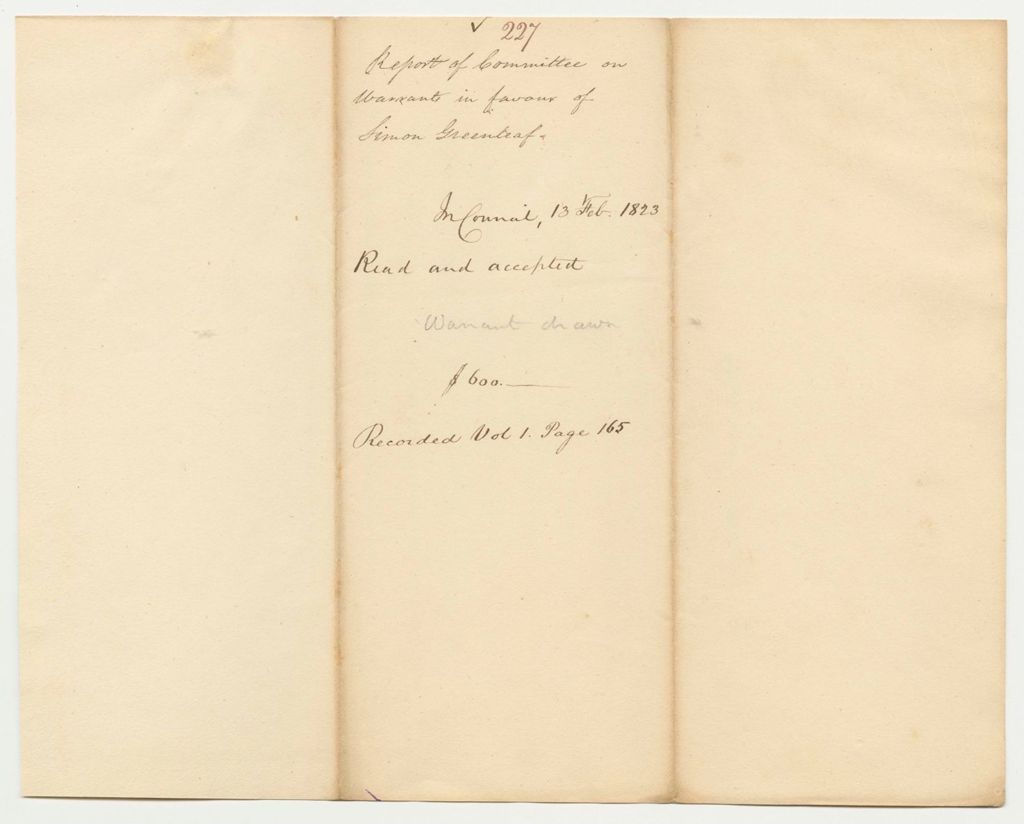 ✓ 227
Report of Committee on
Warrants in favour of
Simon Greenleaf.
In Council, 13 Feb. 1823
Read and accepted
Warrant drawn
$ 600.—
Recorded Vol 1. Page 165